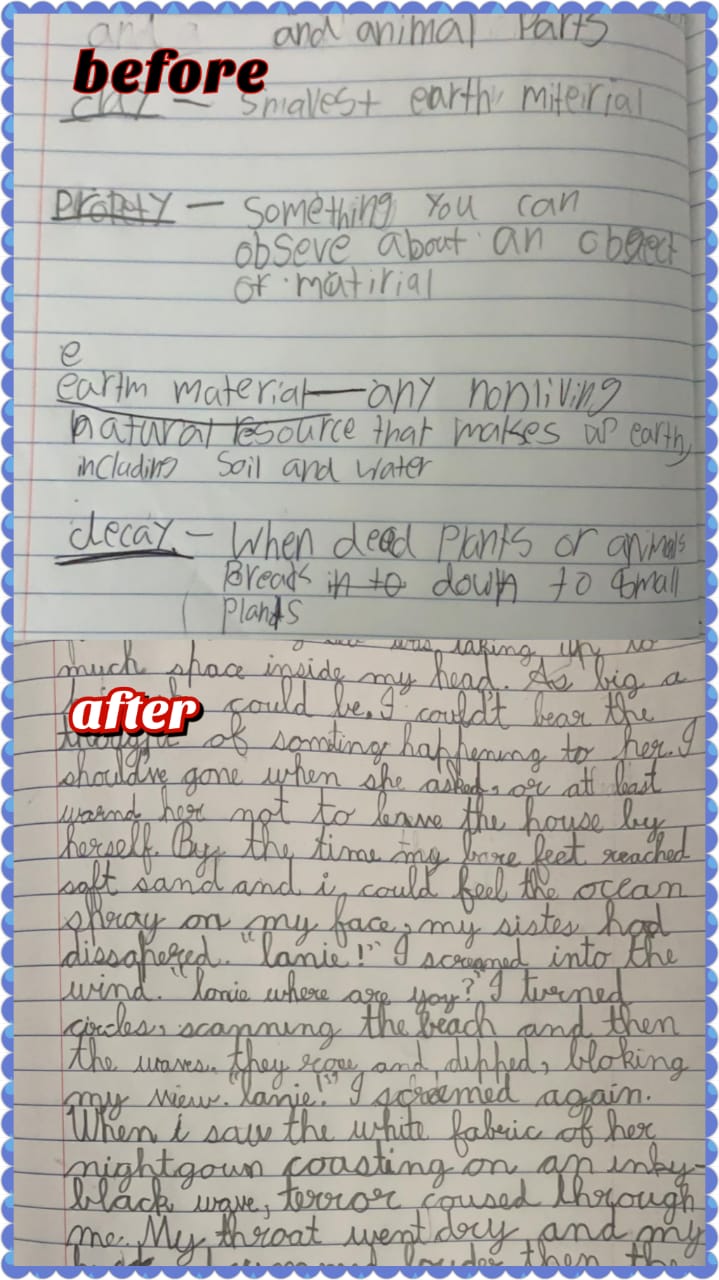 and animal Parts
before
clay - smalest earth miteirial
propety - Something you can
obseve about an object
or matirial
e
earth material - any nonliving
natural resource that makes up earth,
including Soil and water
decay - When dead Plants or animals
Breads in to down to small
Plants
was taking up so
much space inside my head. As big a
after
could be. I could't bear the
thought of somting happening to her. I
should've gone when she asked, or at least
warnd her not to leave the house by
herself. By the time my bare feet reached
soft sand and i could feel the ocean
spray on my face, my sister had
dissapered. "lanie!" I screamed into the
wind. "lanie where are yoy?" I turned
circles, scanning the beach and then
the waves. they rose and dipped, bloking
my view. "lanie!" I screamed again.
When i saw the white fabric of her
nightgown coasting on an inky-
black wave, terror coused through
me. My throat went dry and my
louder then the